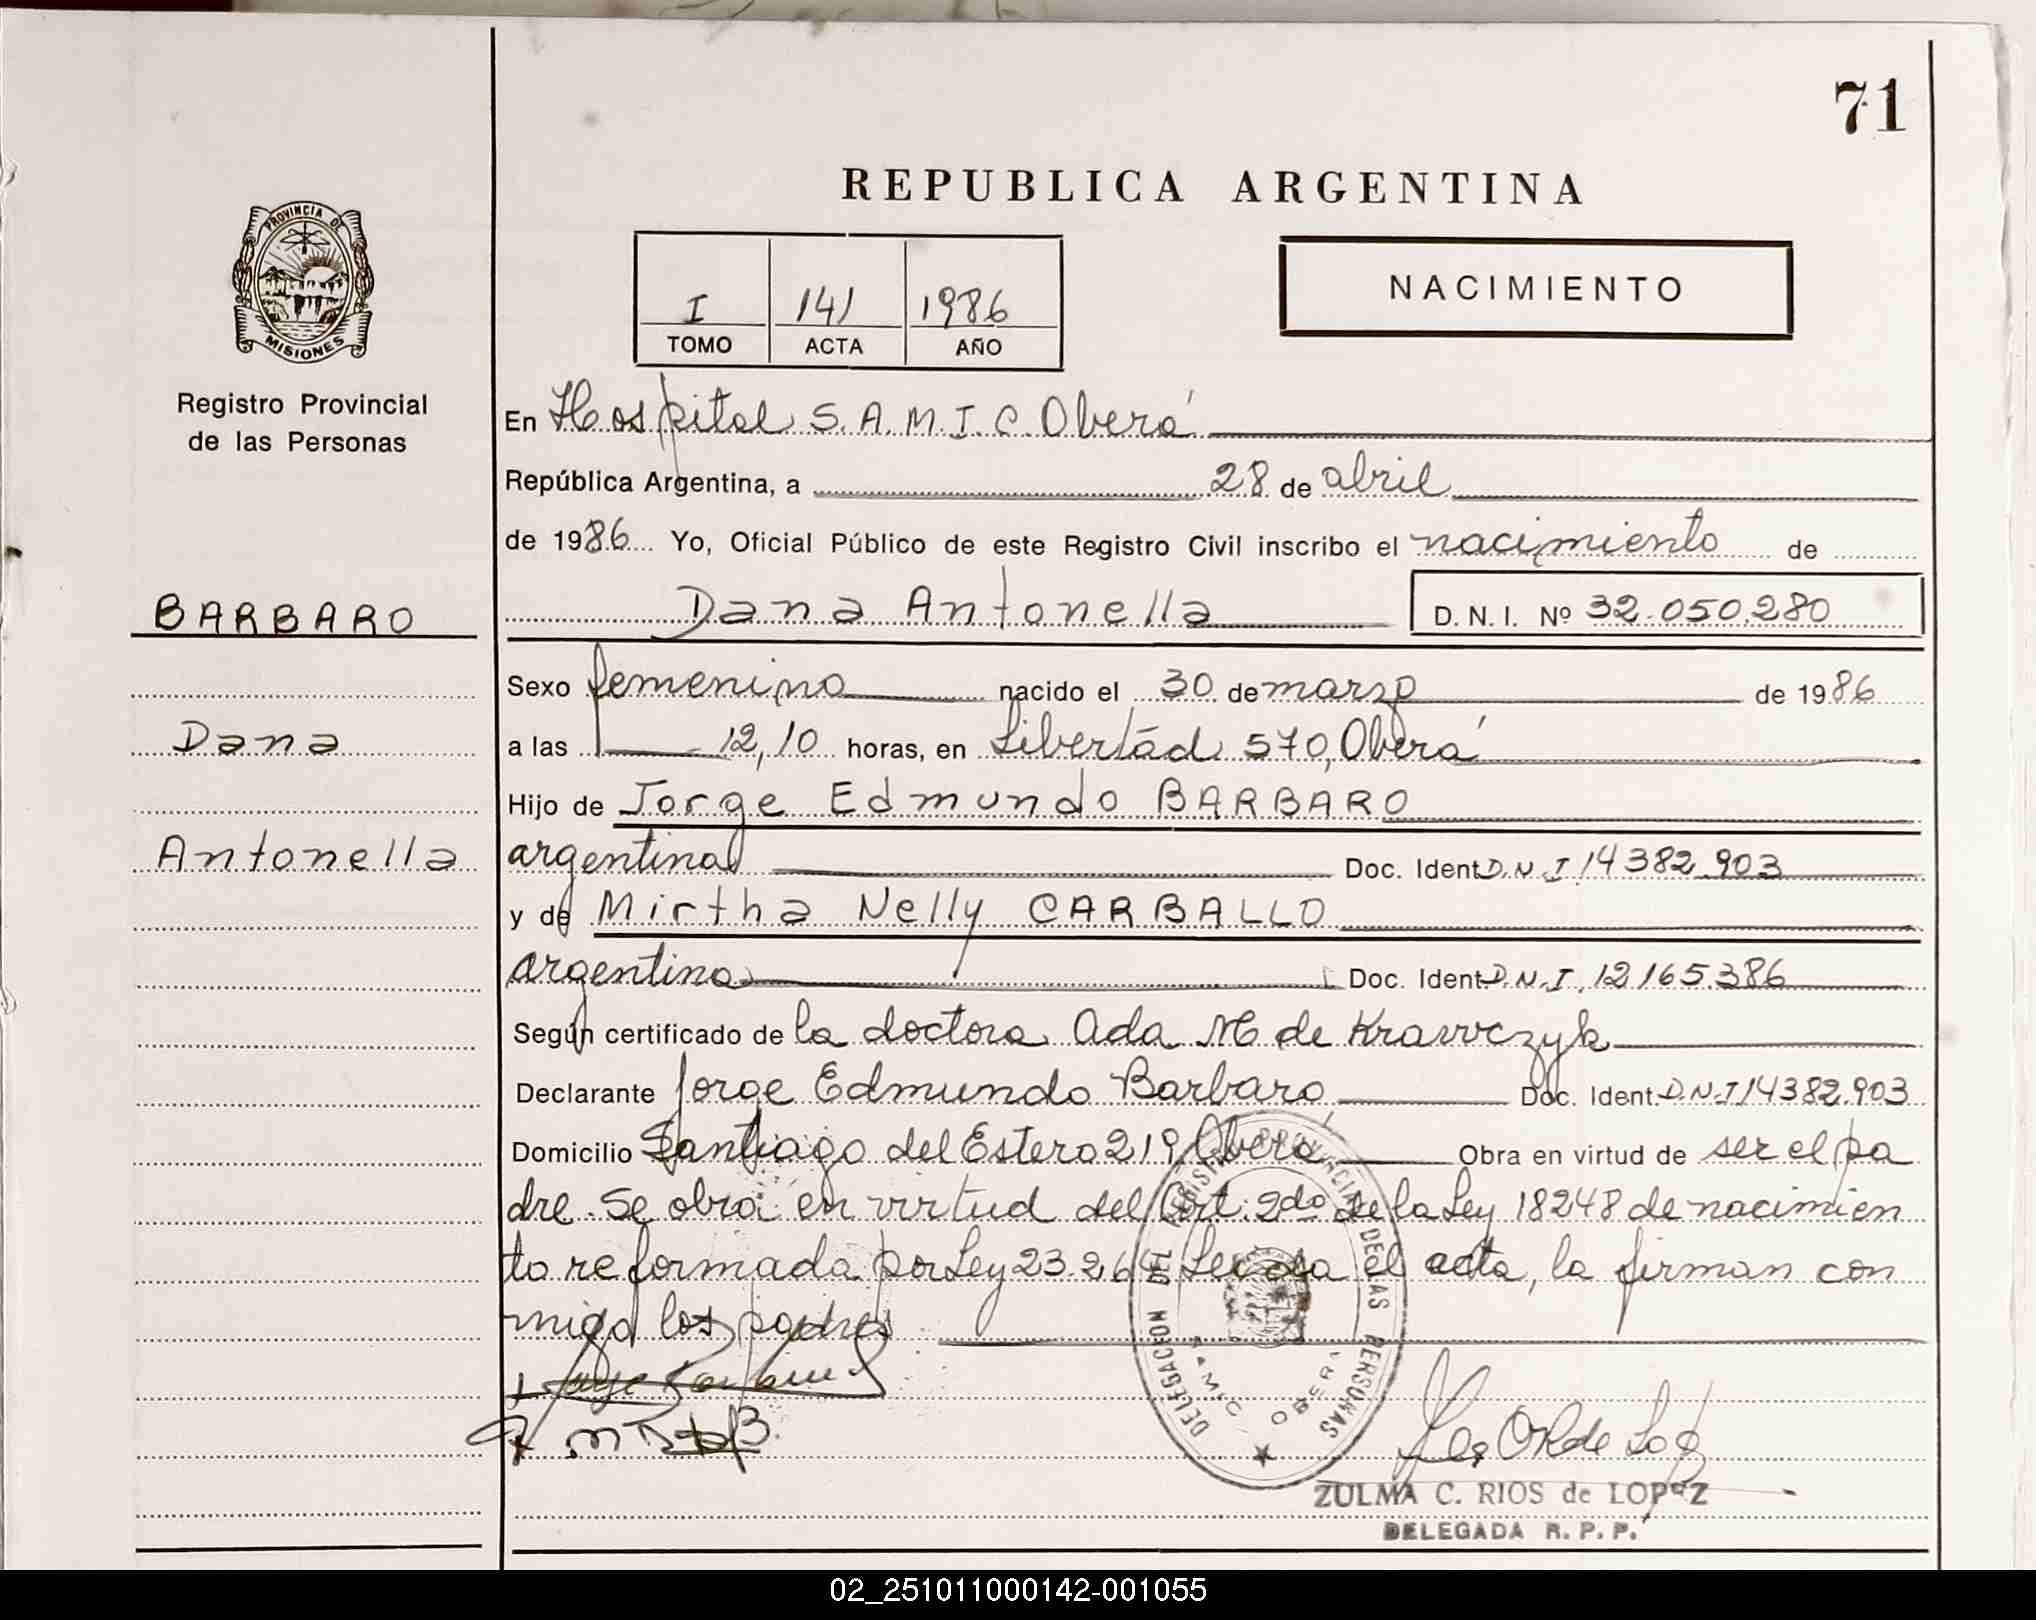 71
REPUBLICA ARGENTINA
PROVINCIA DE
MISIONES
I 141 1986
TOMO ACTA AÑO
NACIMIENTO
Registro Provincial
de las Personas
En Hospital S.A.M.I.C. Oberá
República Argentina, a 28 de abril
de 1986 Yo, Oficial Público de este Registro Civil inscribo el nacimiento de
BARBARO
Dana Antonella D.N.I. Nº 32.050.280
Sexo femenino nacido el 30 de marzo de 1986
Dana
a las 12,10 horas, en Libertád 570, Oberá
Hijo de Jorge Edmundo BARBARO
Antonella
argentina Doc. Ident D.N.I. 14382.903
y de Mirtha Nelly CARBALLO
argentina Doc. Ident D.N.I. 12165.386
Según certificado de la doctora Ada M de Krawczyk
Declarante Jorge Edmundo Barbaro Doc. Ident. D.N.I 14382.903
Domicilio Santiago del Estero 219 Oberá Obra en virtud de ser el pa
dre. Se obra en virtud del Art. 2do de la Ley 18248 de nacimien
to reformada por Ley 23.264 Leida el acta, la firman con
migo los padres
DELEGACION DEL REGISTRO PROVINCIAL DE LAS PERSONAS
SAMIC OBERA
ZULMA C. RIOS de LOPEZ
DELEGADA R. P. P.
02_251011000142-001055